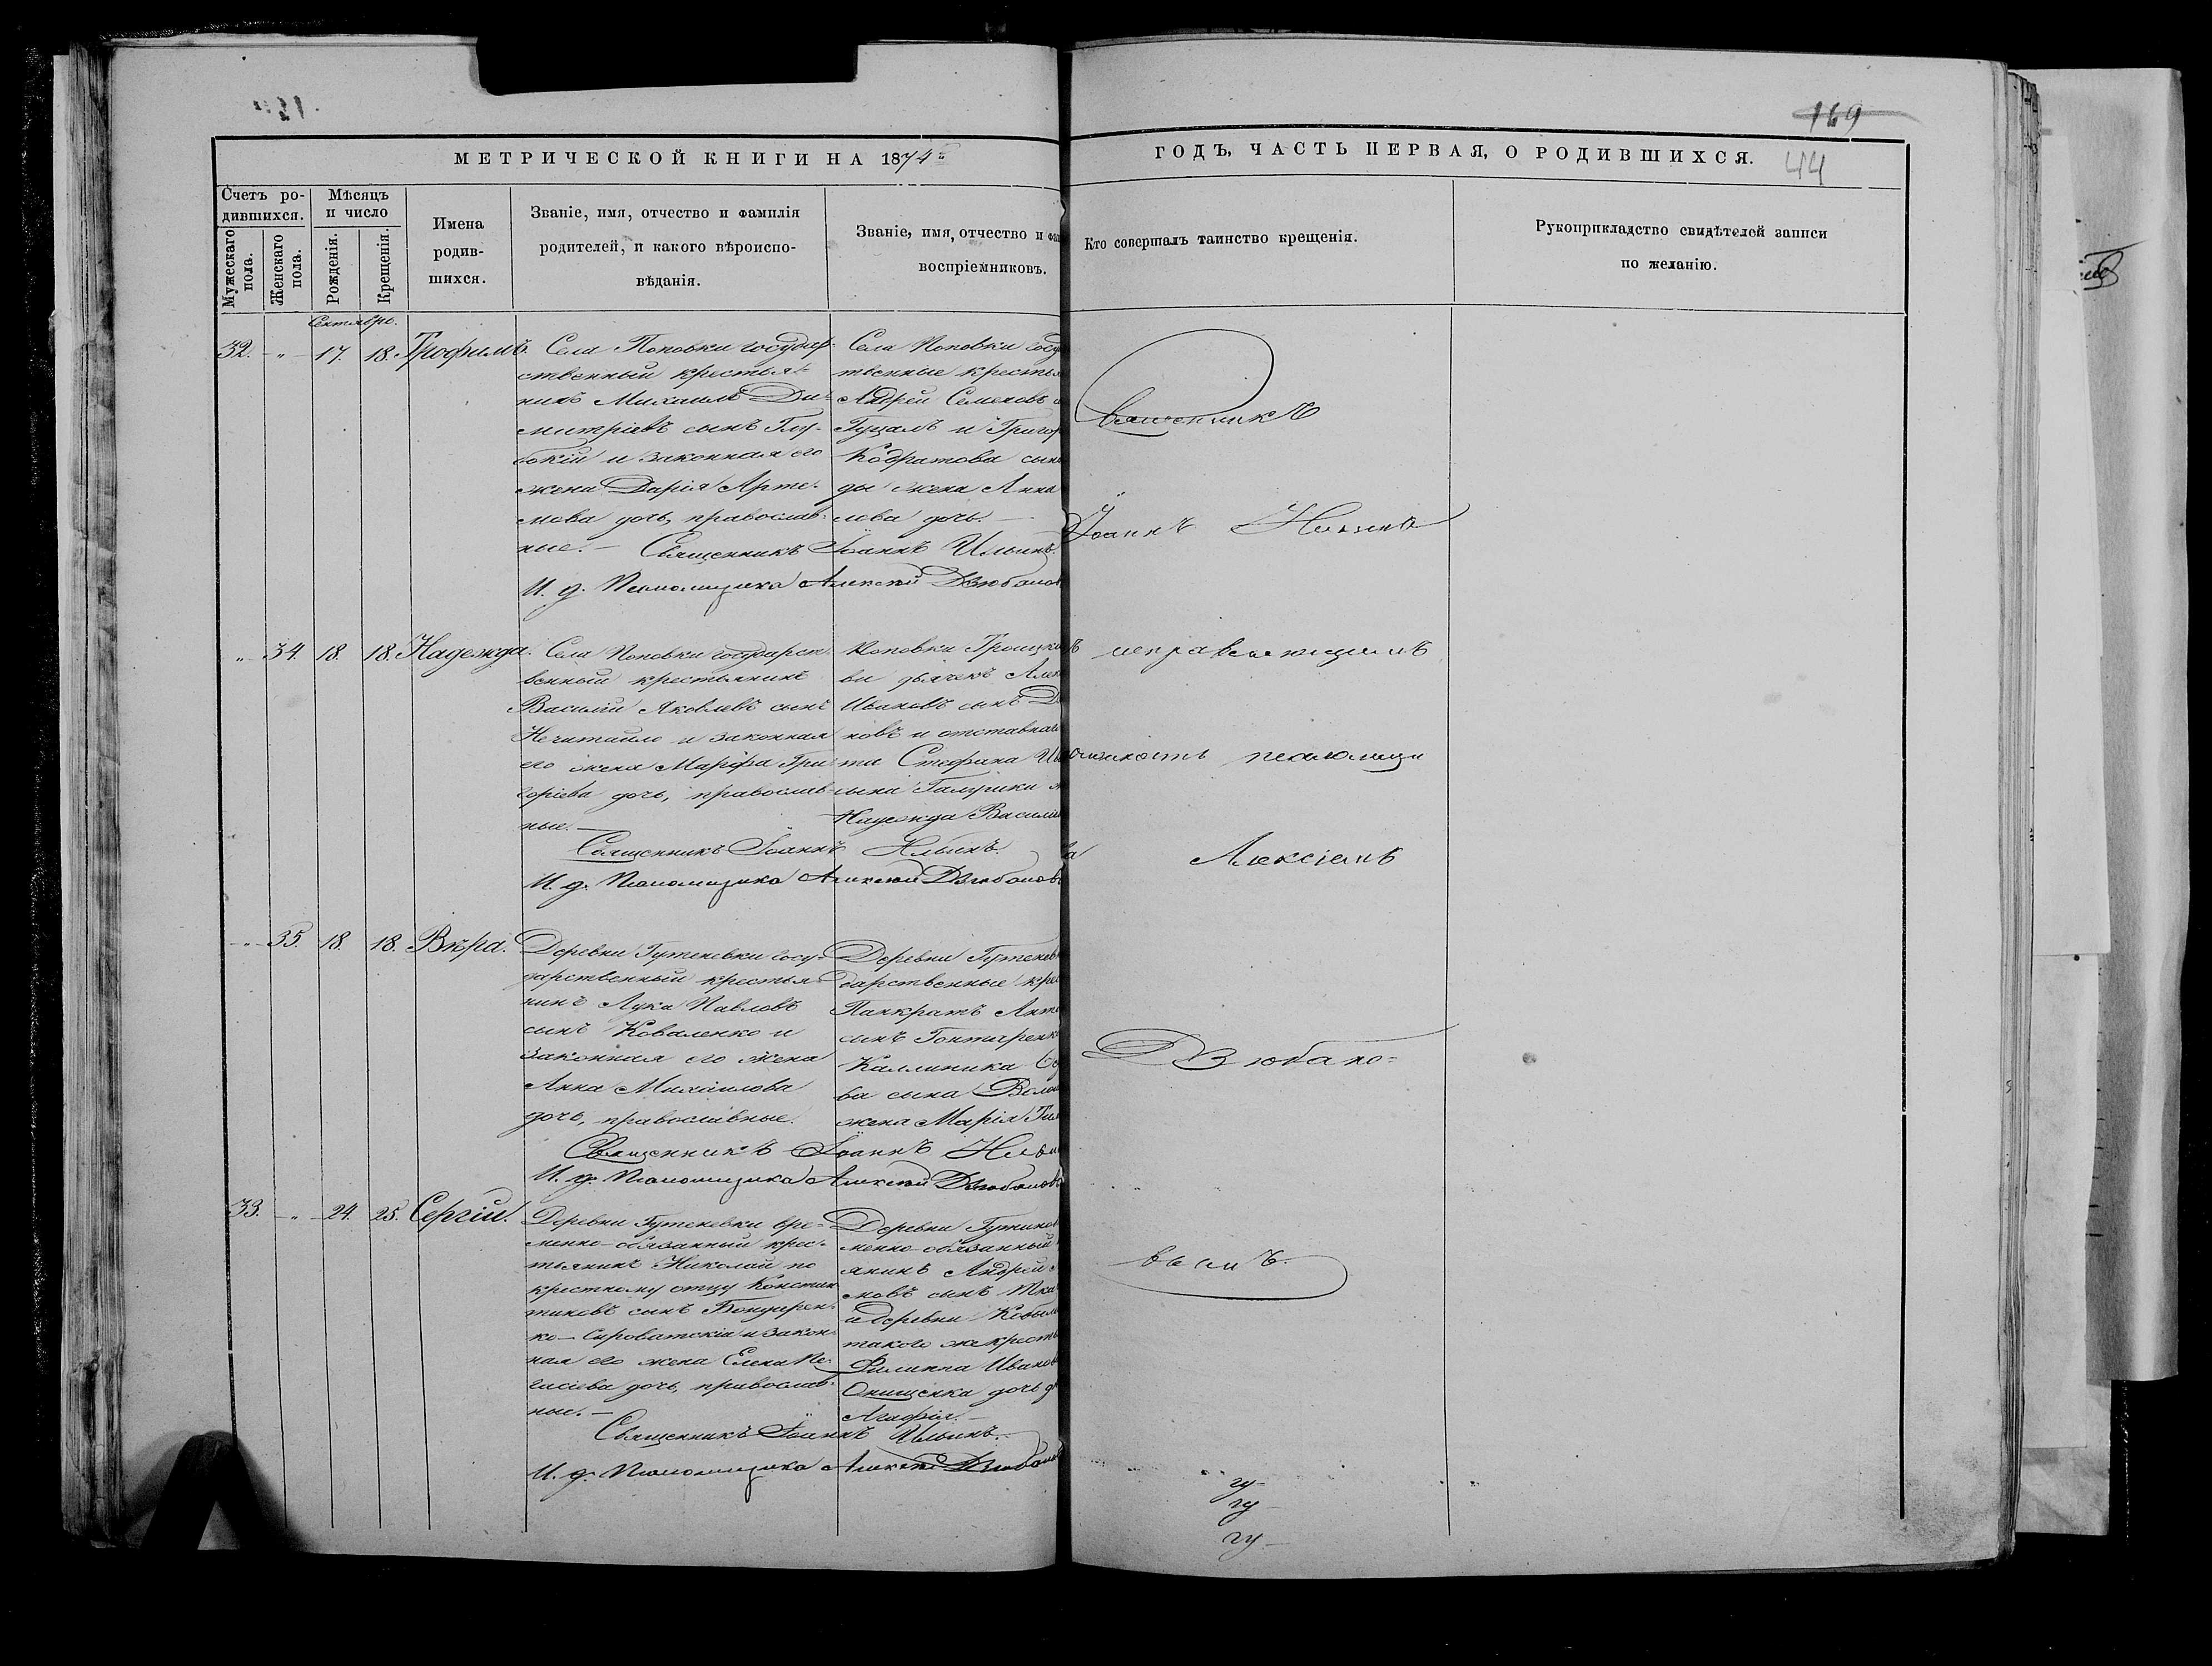 169
МЕТРИЧЕСКОЙ КНИГИ НА 1874
ГОДЪ, ЧАСТЬ ПЕРВАЯ, О РОДИВШИХСЯ.
44
Счетъ ро-
дившихся.
Мужескаго пола.
Женскаго пола.
Мѣсяцъ
и число
Рожденія.
Крещенія.
Имена
родив-
шихся.
Званіе, имя, отчество и фамилія
родителей, и какого вѣроиспо-
вѣданія.
Званіе, имя, отчество и фам
воспріемниковъ.
Кто совершалъ таинство крещенія.
Рукоприкладство свидѣтелей записи
по желанію.
Сентябрь.
32. " 17. 18. Трофимъ.
Села Поповки государ-
ственный крестья-
нинъ Михаилъ Ди-
митріевъ сынъ Глу-
бокій и законная его
жена Дарія Арте-
мова дочь, православ-
ные. —
Села Поповки госу
твенные крестья
Андрей Семеновъ
и Григор
Кодратова сын
ды жена Анна
лова дочь. —
Священникъ Іоаннъ Ильинъ.
И. д. Псаломщика Алексій Дзюбанов
" 34. 18. 18. Надежда.
Села Поповки государст-
венный крестьянинъ
Василій Яковлевъ сынъ
Нечитайло и законная
его жена Марѳа Гри-
горіева дочь, православ-
ные. —
Поповки Троицко
ви дьячекъ Алек
Ивановъ сынъ
новъ и отставна
та Стефана Ив
сына Галушки
Надежда Василі
Священникъ Іоаннъ Ильинъ.
И. д. Псаломщика Алексій Дзюбановъ
" 35. 18. 18. Вѣра.
Деревни Гутеневки госу-
дарственный крестья-
нинъ Лука Павловъ
сынъ Коваленко и
законная его жена
Анна Михаилова
дочь, православные.
Деревни Гутенев
дарственные кре
Панкратъ Анто
сынъ Гонтаренк
Каллиника
ва сына
жена Марія
Священникъ Іоаннъ Ильи
И. д. Псаломщика Алексій Дзюбановъ
33. " 24. 25. Сергій.
Деревни Гутеневки вре-
менно-обязанный крес-
тьянинъ Николай по
крестному отцу Констан-
тиновъ сынъ Бондарен-
ко-Сыроватскій и закон-
ная его жена Елена Пе-
гасіева дочь, православ-
ные. —
Деревни Гутинов
менно-обязанный
янинъ Андрей
мовъ сынъ Тка
и деревни Кобыл
такого же крест
Филиппа Иванов
Онищенка дочь
Агафія. —
Священникъ Іоаннъ Ильинъ.
И. д. Псаломщика Алексій Дзюбанов
Священникъ
Іоаннъ Ильинъ
съ исправляющимъ
должность псаломщи
ка Алексіемъ
Дзюбано-
вымъ.